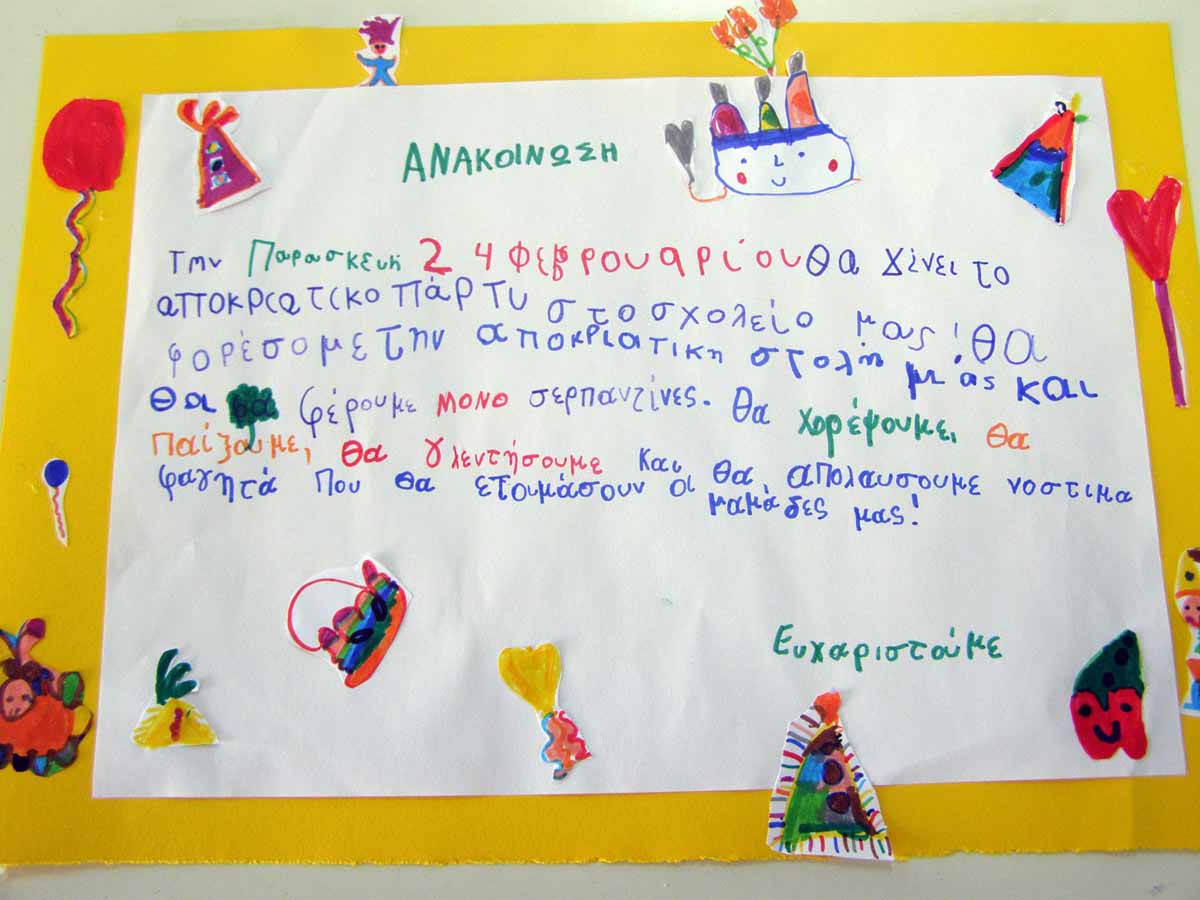 ΑΝΑΚΟΙΝΩΣΗ
Την Παρασκευή 24 Φεβρουαρίου θα γίνει το
αποκριατικο πάρτυ στο σχολείο μας! Θα
φορέσομε την αποκριατικη στολη μας και
θα φέρουμε ΜΟΝΟ σερπαντίνες. Θα χορέψουμε, θα
παίξουμε, θα γλεντήσουμε και θα απολαυσουμε νοστιμα
φαγητά που θα ετοιμάσουν οι μαμάδες μας!
Ευχαριστούμε